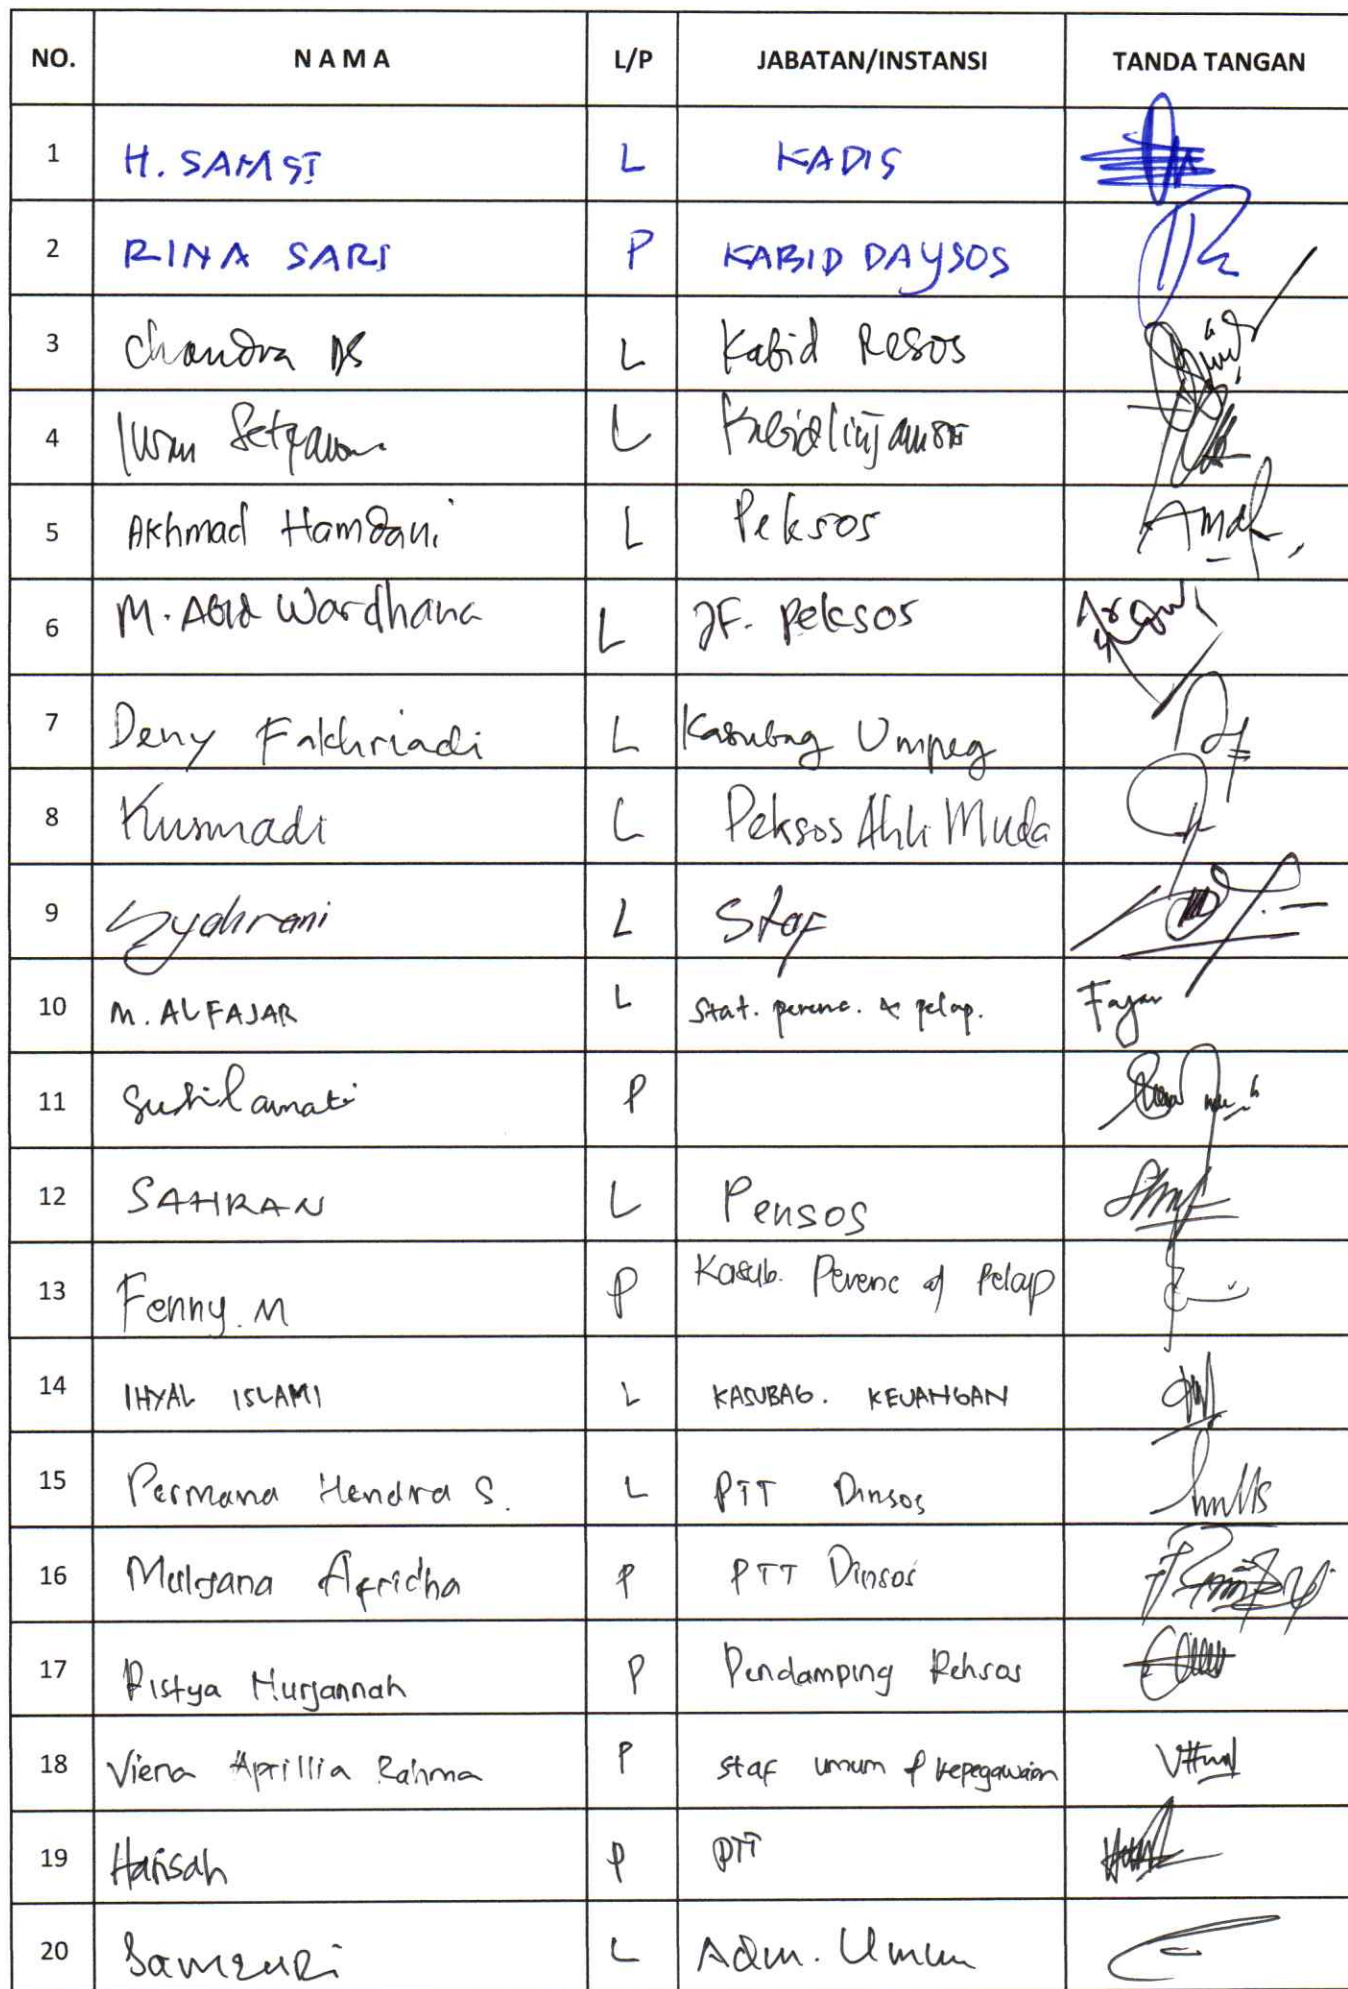 NO. NAMA L/P JABATAN/INSTANSI TANDA TANGAN
1 H. SAMSI L KADIS
2 RINA SARI P KABID DAYSOS
3 Chandra L Kabid Resos
4 Iwan Setyawan L Kabid linjamsos
5 Akhmad Hamdani L Peksos Amd
6 M. Abid Wardhana L JF. Peksos
7 Deny Fakhriadi L Kasubag Umpeg
8 Kusmadi L Peksos Ahli Muda
9 Syahrani L Staf
10 M. AL FAJAR L Staf. perenc. & pelap. Fajar
11 Susilawati P
12 SAHRAN L Pensos
13 Fenny. M P Kasub. Perenc & Pelap
14 IHYAL ISLAMI L KASUBAG. KEUANGAN
15 Permana Hendra S. L PTT Dinsos
16 Mulyana Afridha P PTT Dinsos
17 Ristya Nurjannah P Pendamping Rehsos
18 Viena Aprillia Rahma P Staf umum & kepegawaian
19 Harisah P PTT
20 Samzuri L Adm. Umum